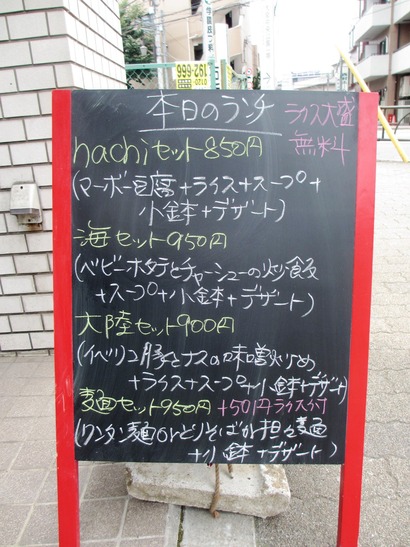 本日のランチ
ライス大盛
無料
hachiセット850円
(マーボー豆腐+ライス+スープ+
小鉢+デザート)
海セット950円
(ベビーホタテとチャーシューの炒飯
+スープ+小鉢+デザート)
大陸セット900円
(イベリコ豚とナスの味噌炒め
+ライス+スープ+小鉢+デザート)
麺セット950円+50円ライス付
(ワンタン麺orとりそばor担々麺
+小鉢+デザート)